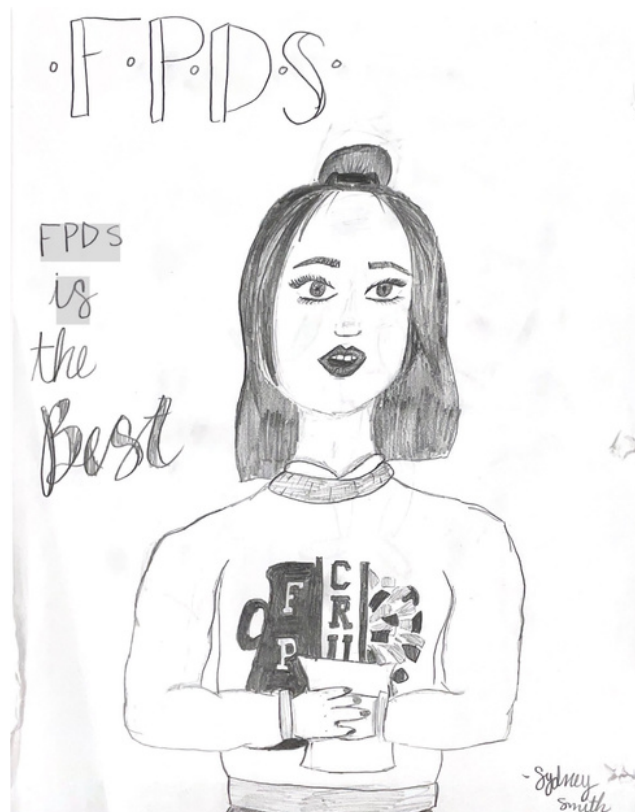 ·F·P·D·S·
FPDS
is
the
Best
F
P
C
R
U
-Sydney
Smith